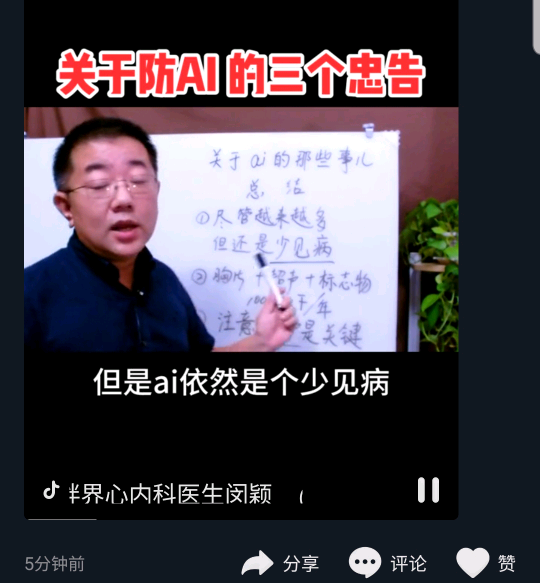 关于防AI的三个忠告
关于ai的那些事儿
总结
①尽管越来越多
但还是少见病
②胸片+超声+标志物
100
/年
注意
是关键
但是ai依然是个少见病
界心内科医生闵颖
5分钟前
分享
评论
赞